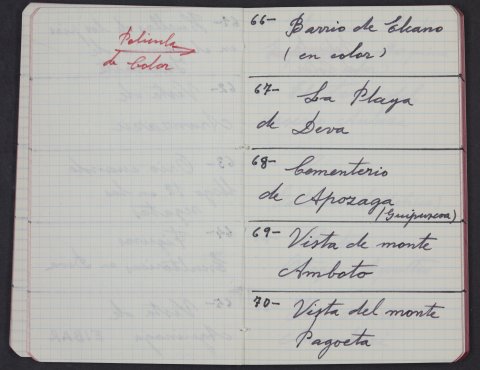 Película
de Color
66- Barrio de Elcano
(en color)
67- La Playa
de Deva
68- Cementerio
de Apozaga
(Guipuzcoa)
69- Vista de monte
Amboto
70- Vista del monte
Pagoeta